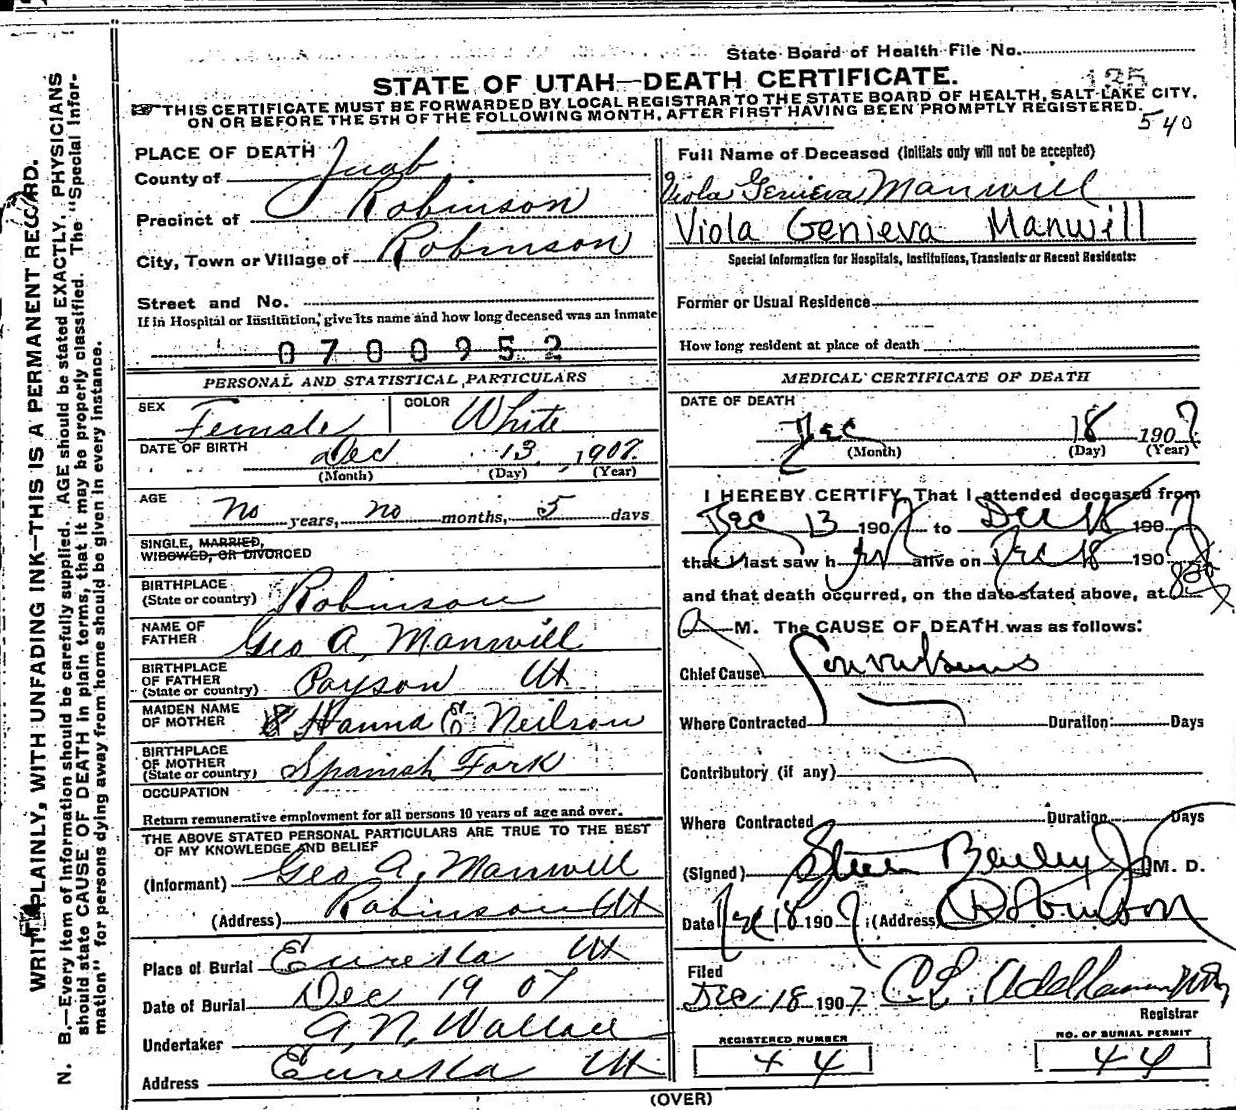 State Board of Health File No.
STATE OF UTAH—DEATH CERTIFICATE.
125
THIS CERTIFICATE MUST BE FORWARDED BY LOCAL REGISTRAR TO THE STATE BOARD OF HEALTH, SALT LAKE CITY,
ON OR BEFORE THE 5TH OF THE FOLLOWING MONTH, AFTER FIRST HAVING BEEN PROMPTLY REGISTERED.
540
WRITE PLAINLY, WITH UNFADING INK—THIS IS A PERMANENT RECORD.
N. B.—Every item of information should be carefully supplied. AGE should be stated EXACTLY. PHYSICIANS
should state CAUSE OF DEATH in plain terms, that it may be properly classified. The "Special Infor-
mation" for persons dying away from home should be given in every instance.
PLACE OF DEATH
County of Juab
Precinct of Robinson
City, Town or Village of Robinson
Street and No.
If in Hospital or Institution, give its name and how long deceased was an inmate
0700952
PERSONAL AND STATISTICAL PARTICULARS
SEX Female COLOR White
DATE OF BIRTH Dec 13, 1907.
(Month) (Day) (Year)
AGE
No years, no months, 5 days
SINGLE, MARRIED,
WIDOWED, OR DIVORCED
BIRTHPLACE
(State or country) Robinson
NAME OF
FATHER Geo A. Manwill
BIRTHPLACE
OF FATHER
(State or country) Payson Ut
MAIDEN NAME
OF MOTHER Hanna E Neilson
BIRTHPLACE
OF MOTHER
(State or country) Spanish Fork
OCCUPATION
Return remunerative employment for all persons 10 years of age and over.
THE ABOVE STATED PERSONAL PARTICULARS ARE TRUE TO THE BEST
OF MY KNOWLEDGE AND BELIEF
(Informant) Geo A. Manwill
(Address) Robinson Ut
Place of Burial Eureka Ut
Date of Burial Dec 19 07
Undertaker A. N. Wallace
Address Eureka Ut
Full Name of Deceased (Initials only will not be accepted)
Viola Genieva Manwill
Viola Genieva Manwill
Special Information for Hospitals, Institutions, Transients or Recent Residents:
Former or Usual Residence
How long resident at place of death
MEDICAL CERTIFICATE OF DEATH
DATE OF DEATH
Dec 18 1907
(Month) (Day) (Year)
I HEREBY CERTIFY, That I attended deceased from
Dec 13 1907 to Dec 18 1907
that I last saw h er alive on Dec 18 1907
and that death occurred, on the date stated above, at
A M. The CAUSE OF DEATH was as follows:
Chief Cause Convulsions
Where Contracted Duration Days
Contributory (if any)
Where Contracted Duration Days
(Signed) Steele Bailey Jr M. D.
Date Dec 18 1907 (Address) Robinson
Filed
Dec 18 1907
Registrar
REGISTERED NUMBER
44
NO. OF BURIAL PERMIT
44
(OVER)